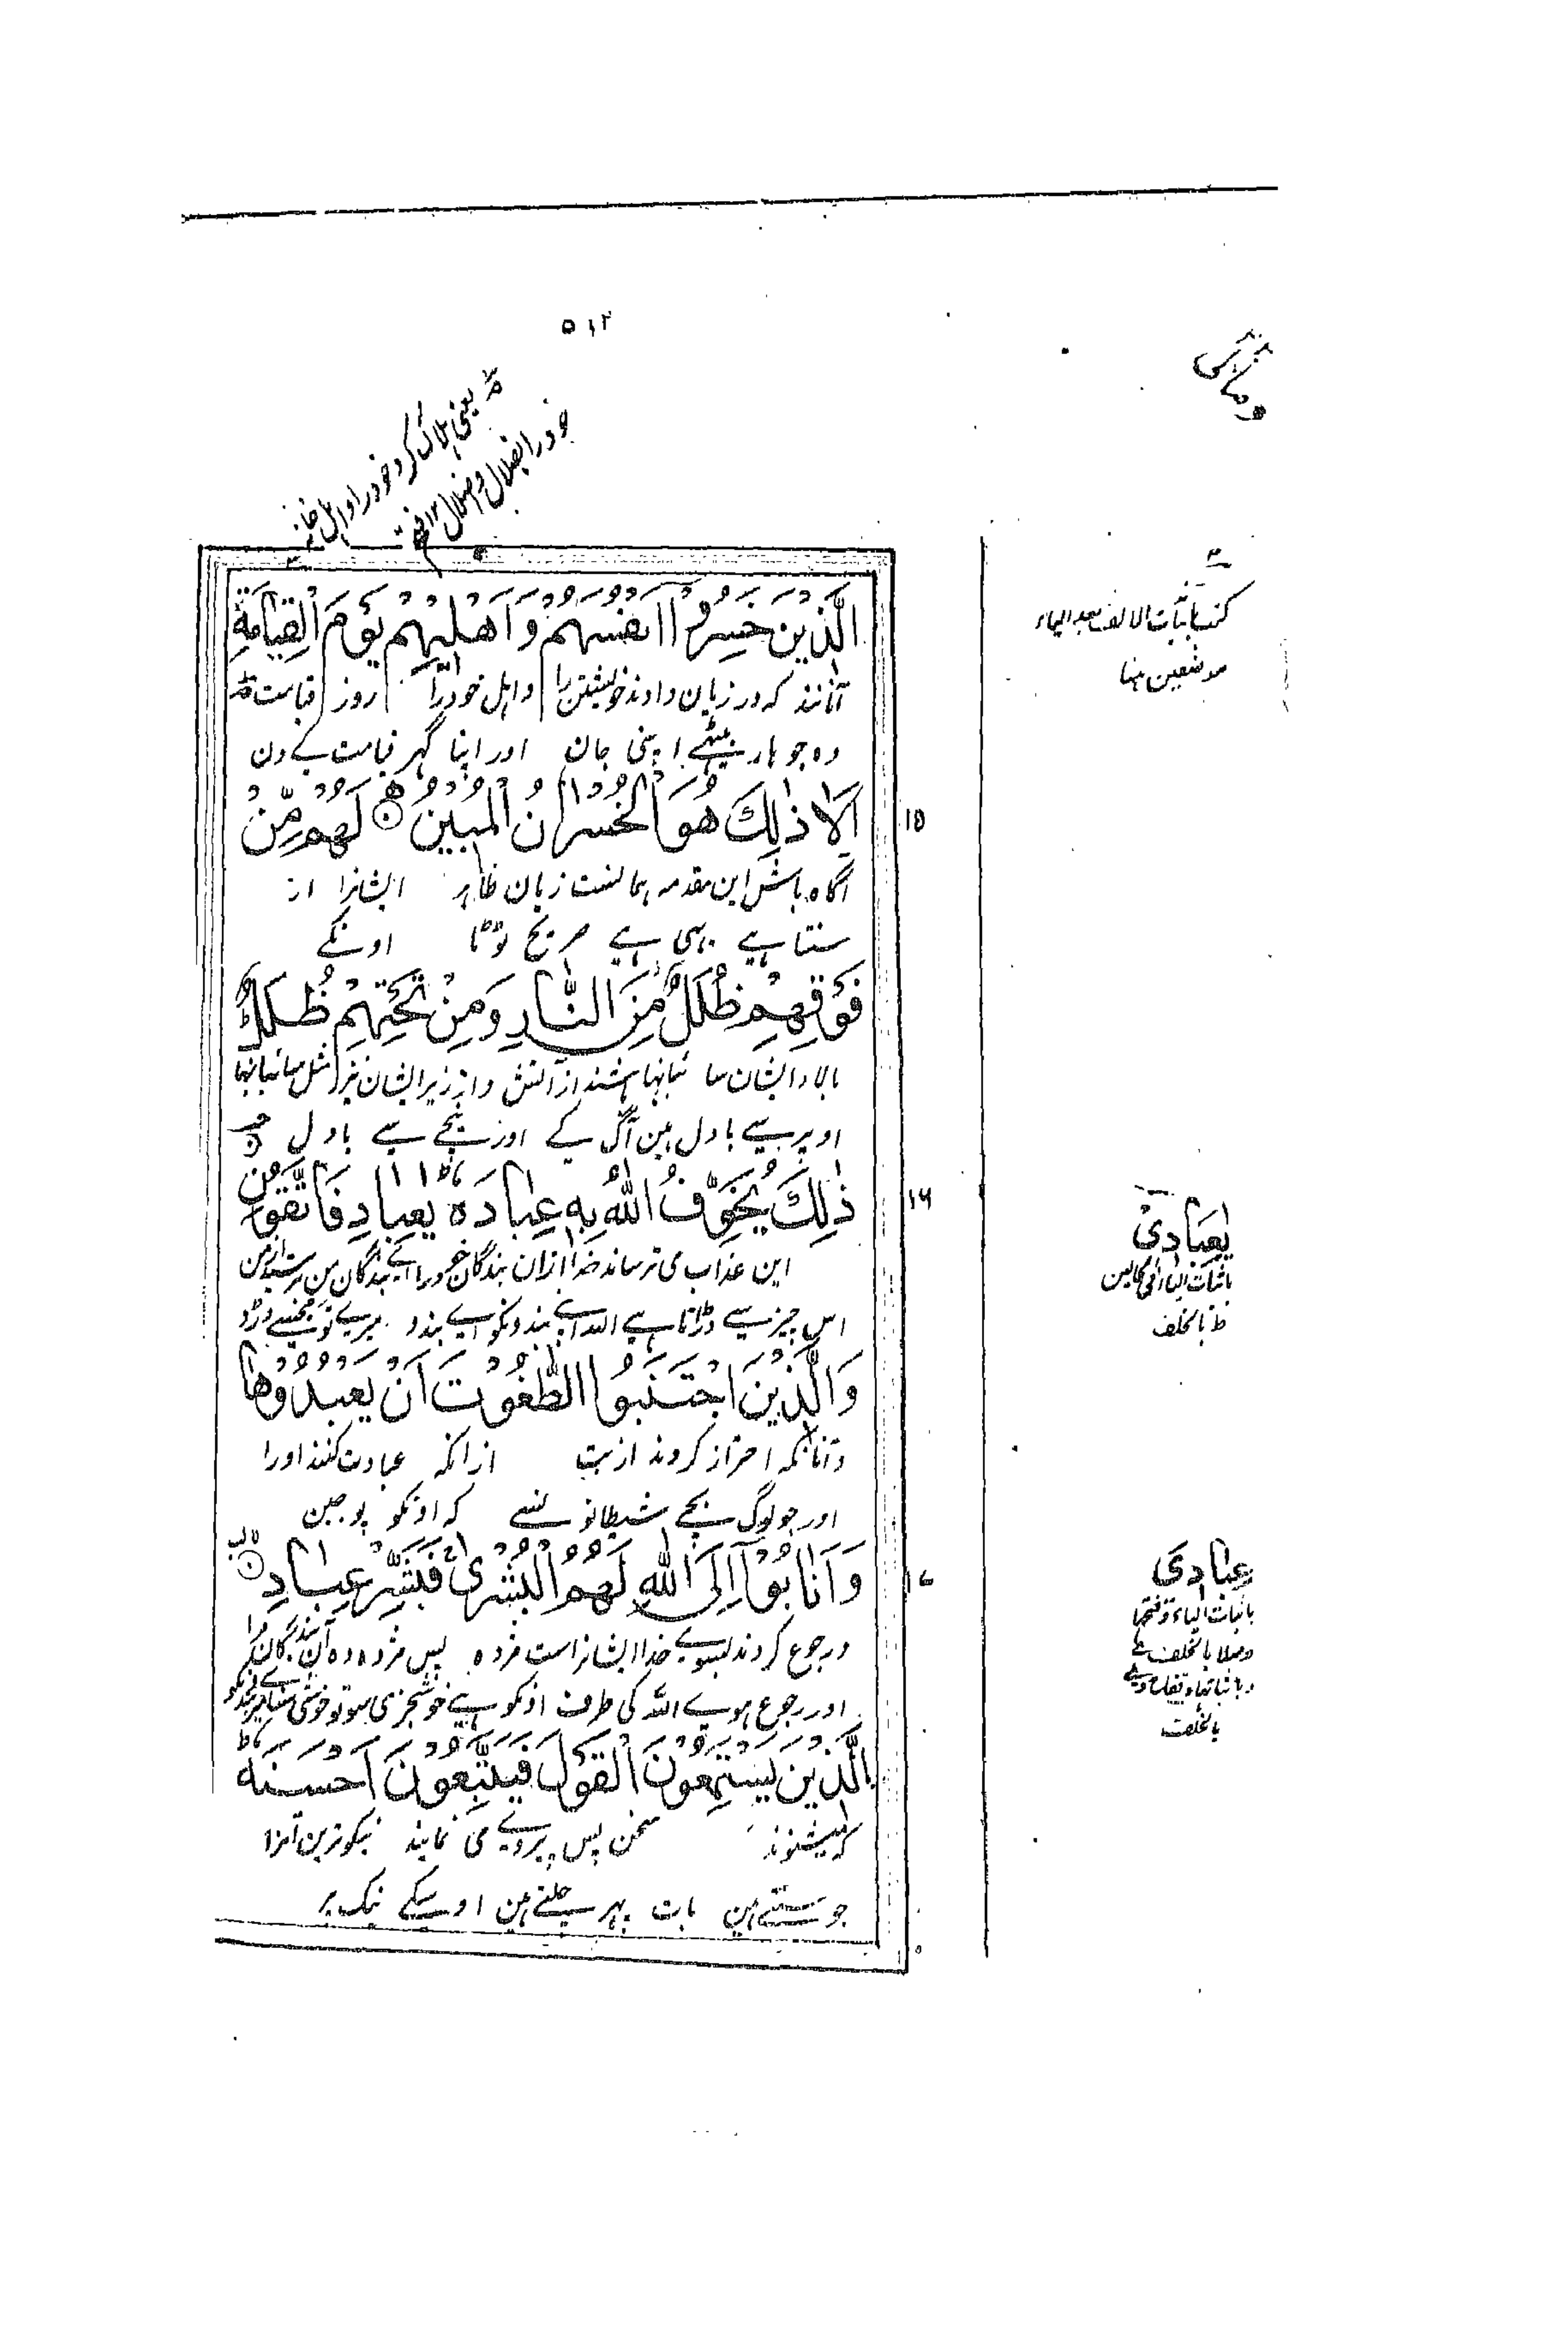 ٥١٢
ومالی
یعنی ہلاک کرد خود را و اہل خانہ
خود را بضلال و اضلال ١٢ فتح
الَّذِيْنَ خَسِرُوْٓا اَنْفُسَهُمْ وَاَهْلِيْهِمْ يَوْمَ الْقِيٰمَةِ
آنانند که در زیان دادند خویشتن را و اہل خود را روز قیامت
وہ جو ہار بیٹھے اپنی جان اور اپنا گہر قیامت کے دن
اَلَا ذٰلِكَ هُوَ الْخُسْرَانُ الْمُبِيْنُ لَهُمْ مِّنْ
١٥
آگاہ باش این مقدمہ ہمانست زیان ظاہر ایشانرا از
سنتا ہے یہی ہے صریح ٹوٹا اونکے
فَوْقِهِمْ ظُلَلٌ مِّنَ النَّارِ وَمِنْ تَحْتِهِمْ ظُلَلٌ
بالاء ایشان سائبانہا باشند از آتش و از زیر ایشان نیز مثل سائبانہا
اوپر سے بادل ہین آگ کے اور نیچے سے بادل
ذٰلِكَ يُخَوِّفُ اللهُ بِهٖ عِبَادَهٗ يٰعِبَادِ فَاتَّقُوْنِ
١٦
این عذاب می ترساند خدا ازان بندگان خود را اے بندگان من بترسید از من
اس چیز سے ڈراتا ہے اللہ اپنے بندونکو اے بندو میرے تو مجھسے ڈرو
وَالَّذِيْنَ اجْتَنَبُوا الطّٰغُوْتَ اَنْ يَّعْبُدُوْهَا
و آنانکہ احتراز کردند از بت از انکہ عبادت کنند او را
اور جو لوگ بچے شیطانونسے کہ اونکو پوجین
وَاَنَابُوْٓا اِلَى اللهِ لَهُمُ الْبُشْرٰى فَبَشِّرْ عِبَادِ
١٧
و رجوع کردند بسوے خدا ایشانراست مژدہ پس مژدہ دہ آن بندگان مرا
اور رجوع ہوے اللہ کی طرف اونکو ہے خوشخبری سو تو خوشی سنا میرے بندونکو
الَّذِيْنَ يَسْتَمِعُوْنَ الْقَوْلَ فَيَتَّبِعُوْنَ اَحْسَنَهٗ
کہ میشنوند سخن پس پیروے می نمایند نیکوترین آنرا
جو سنتے ہین بات پہر چلتے ہین اوسکے نیک پر
کتب باثبات الالف بعد الیاء
موضعین ہنا
يٰعِبَادِيْ
باثبات الیاء فی الحالین
بالخلف
عِبَادِيَ
باثبات الیاء و فتحہا
وصلا بالخلف
بالخلف